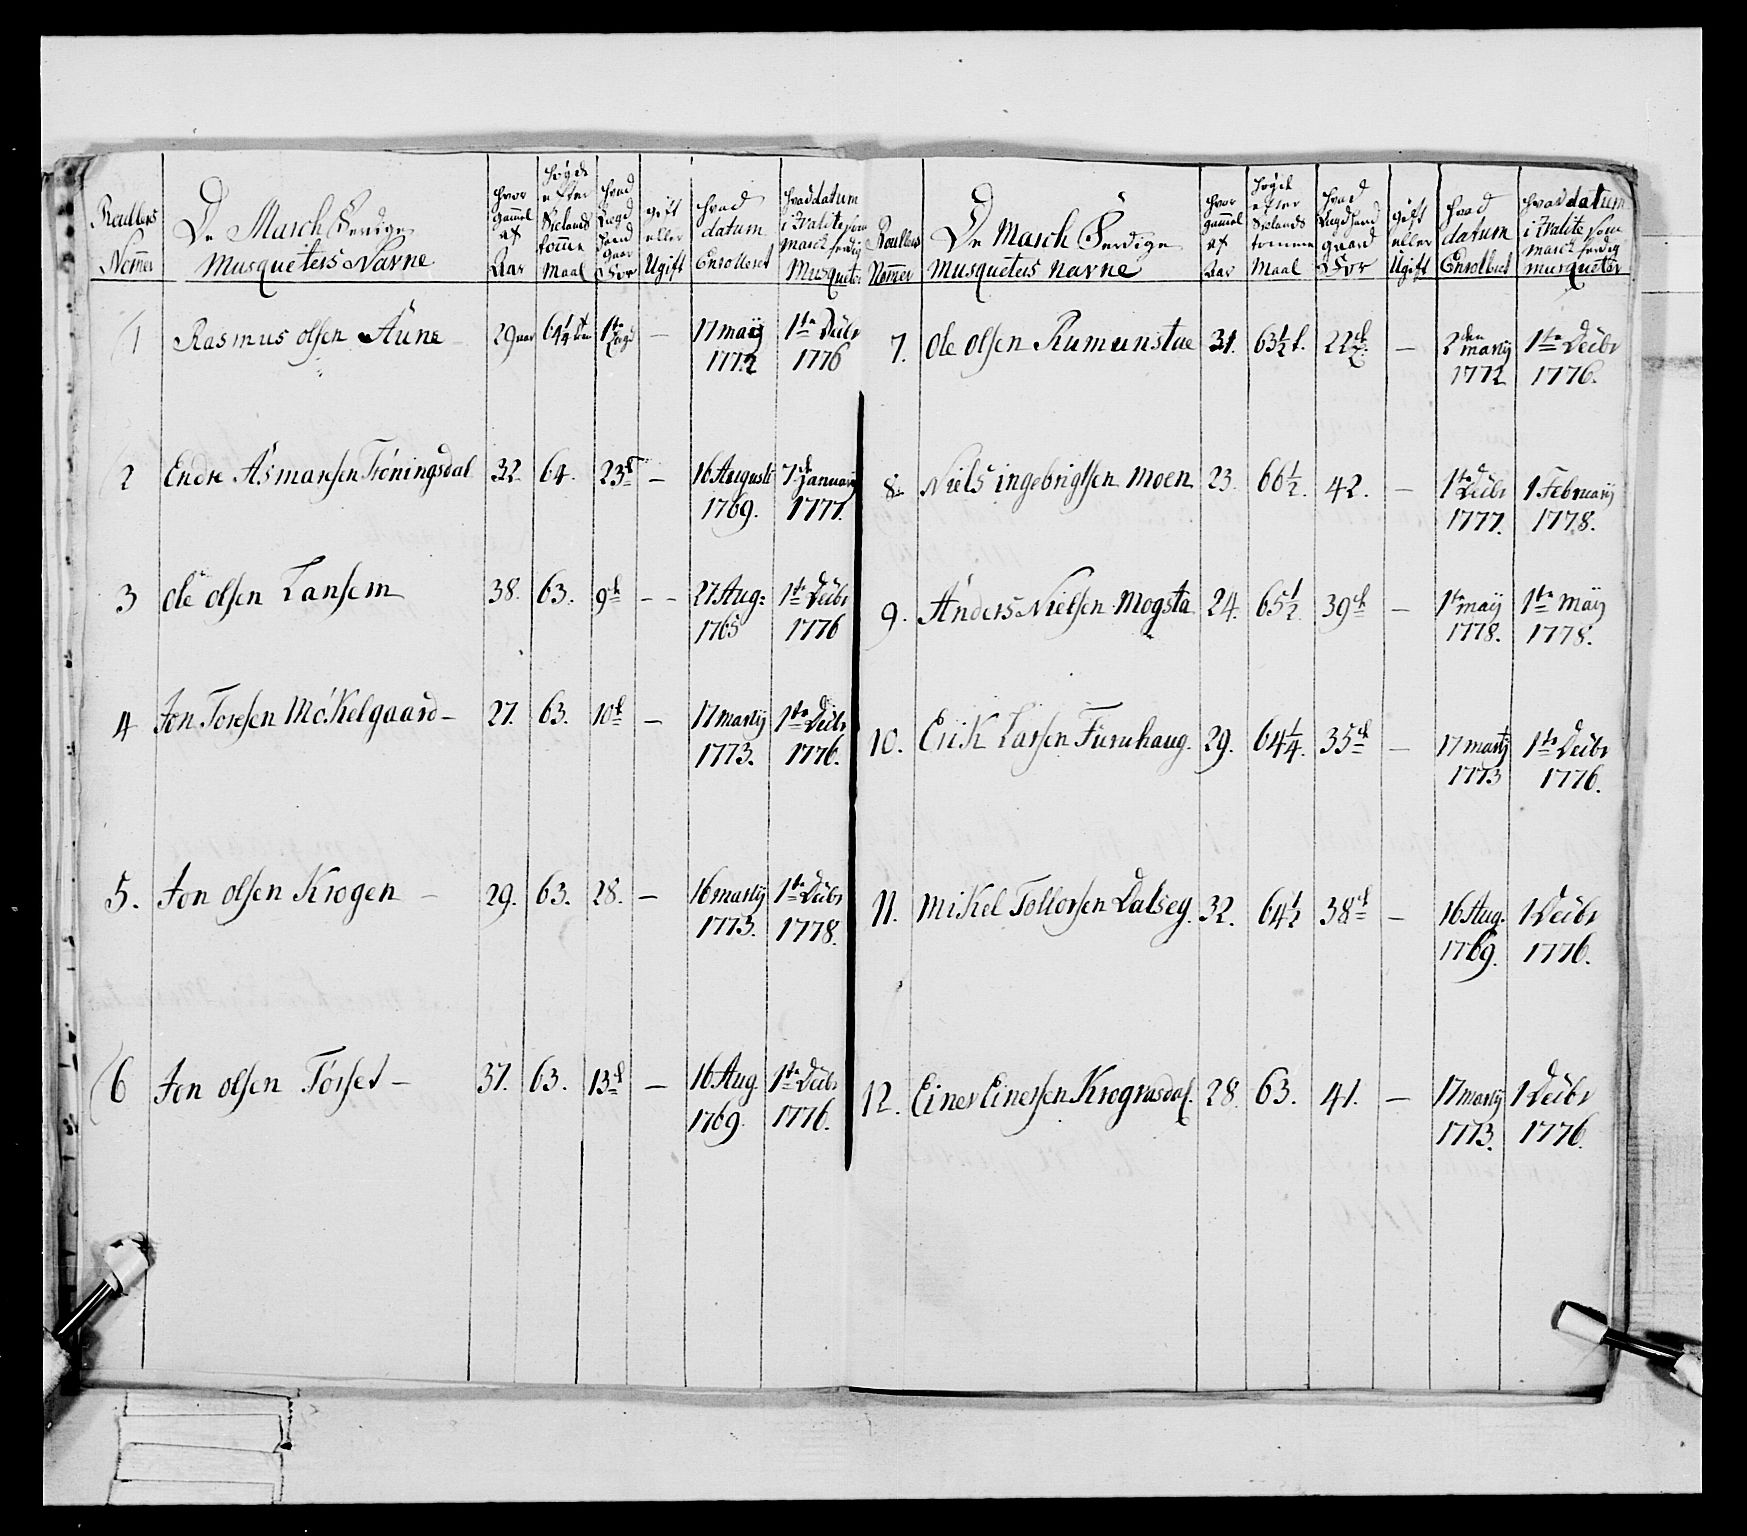 Roullens Nomer | De March Ferdige Musqueters Navne | hvor gammel af Aar | høyde efter Siælands tomme Maal | hvad Lægd hand giør for | gift eller Ugift | hvad datum Enrolleret | hvad datum i Stalite som march ferdig Musquet:
1 Rasmus olsen Aune 29 aar 64 1/4 tom 1te Lægd — 17 maÿ 1772 1te Decbr 1776
2 Endre Asmansen Trøningsdal 32 64. 23d — 16 Augusti 1769. 7de Januarÿ 1777.
3 ole olsen Lansem 38. 63. 9de — 27 Aug: 1765 1te Decbr 1776
4 Jon Toresen Møkelgaard — 27. 63. 10d — 17 martij 1773. 1te Decbr 1776.
5. Jon olsen Krogen — 29. 63. 28. — 16 martij 1773. 1te Decbr 1778.
6 Jon olsen Torset — 37. 63. 13d — 16 Aug 1769. 1te Decbr 1776.
Roullens Nomer | De March Ferdige Musqueters navne | hvor gammel af Aar | høyde efter Siælands tomme Maal | hvad Lægd hand giør for | gift eller Ugift | hvad datum Enrolleret | hvad datum i Stalite som march ferdig musquetør
7. ole olsen Rumunstue 31. 63 1/2 t. 22de L. — 2den martij 1772 1te Decbr 1776.
8. Niels ingebrigtsen moen 23. 66 1/2. 42. — 1te Decbr 1777. 1 Februarij 1778.
9. Anders Nielsen Mogsta 24. 65 1/2. 39de — 1te maÿ 1778. 1te maÿ 1778.
10. Erik Larsen Furuhaug. 29. 64 1/4. 35de — 17 martij 1773 1te Decbr 1776.
11. Mikel Tollorsen Dalseg. 32. 64 1/2 38de — 16 Aug. 1769. 1 Decbr 1776.
12. Einer Einersen Krognasdal. 28. 63. 41. — 17 martij 1773. 1 Decbr 1776.